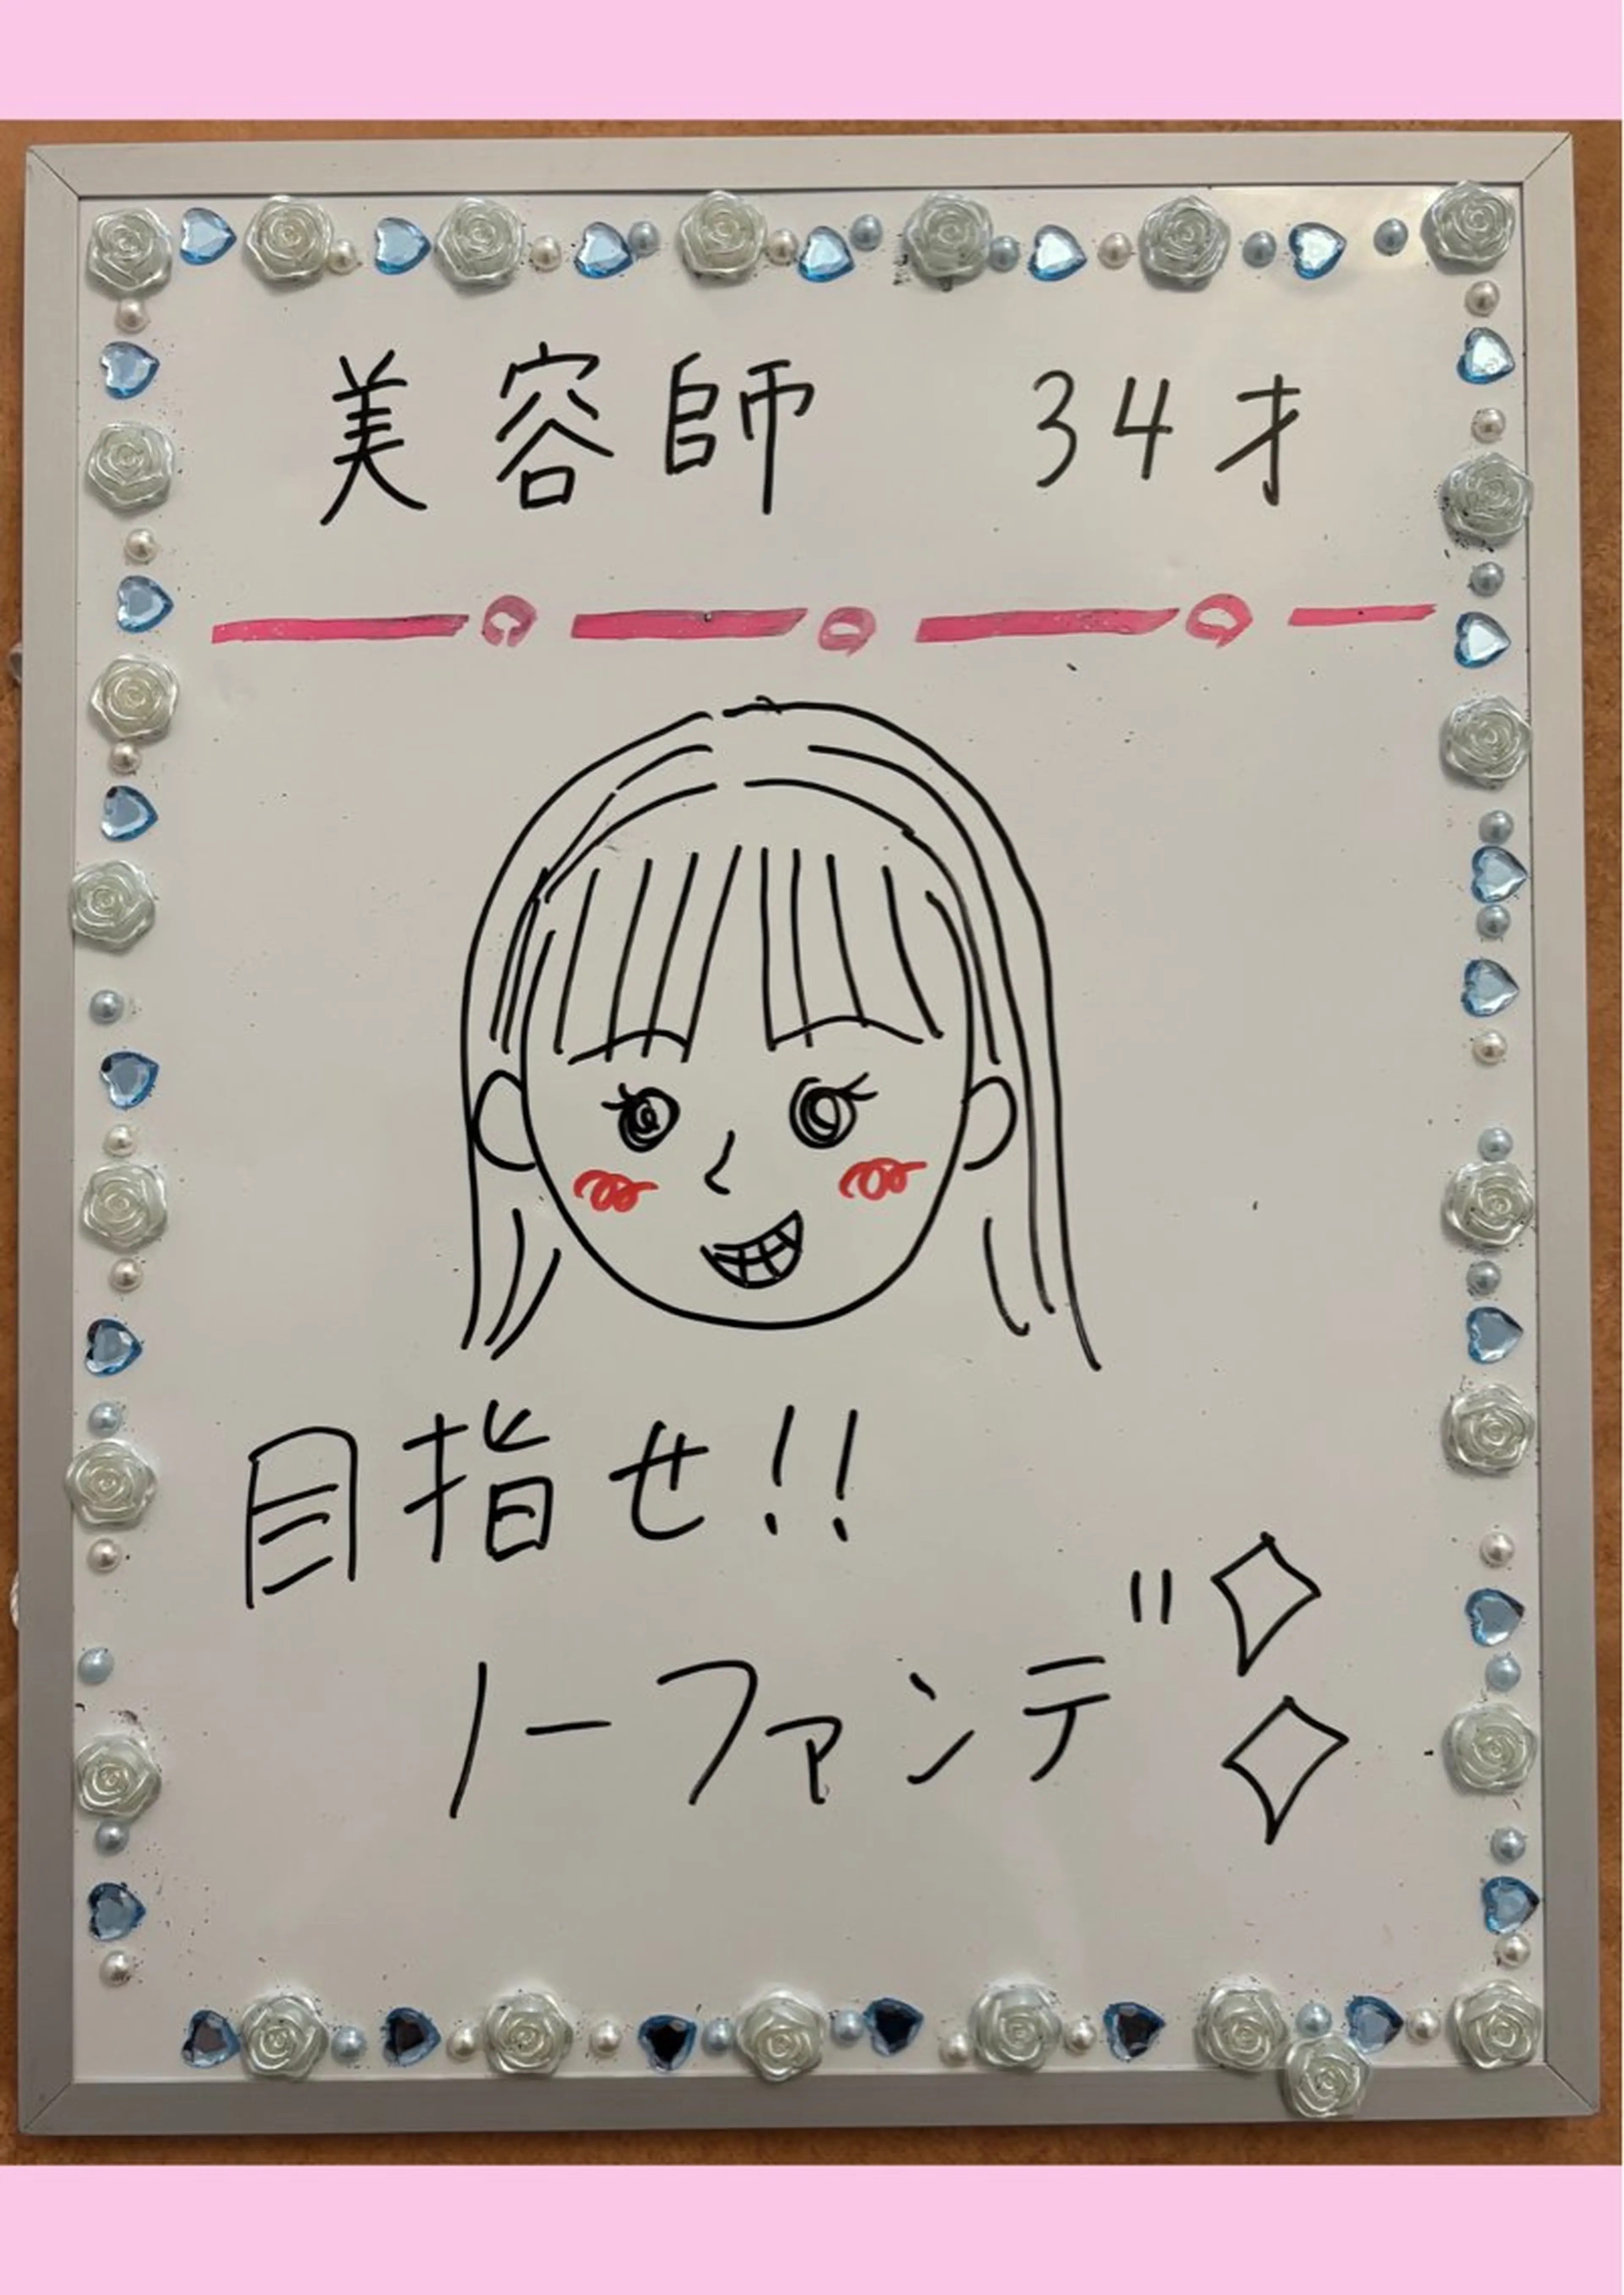 美容師 34才
目指せ!!
ノーファンデ"